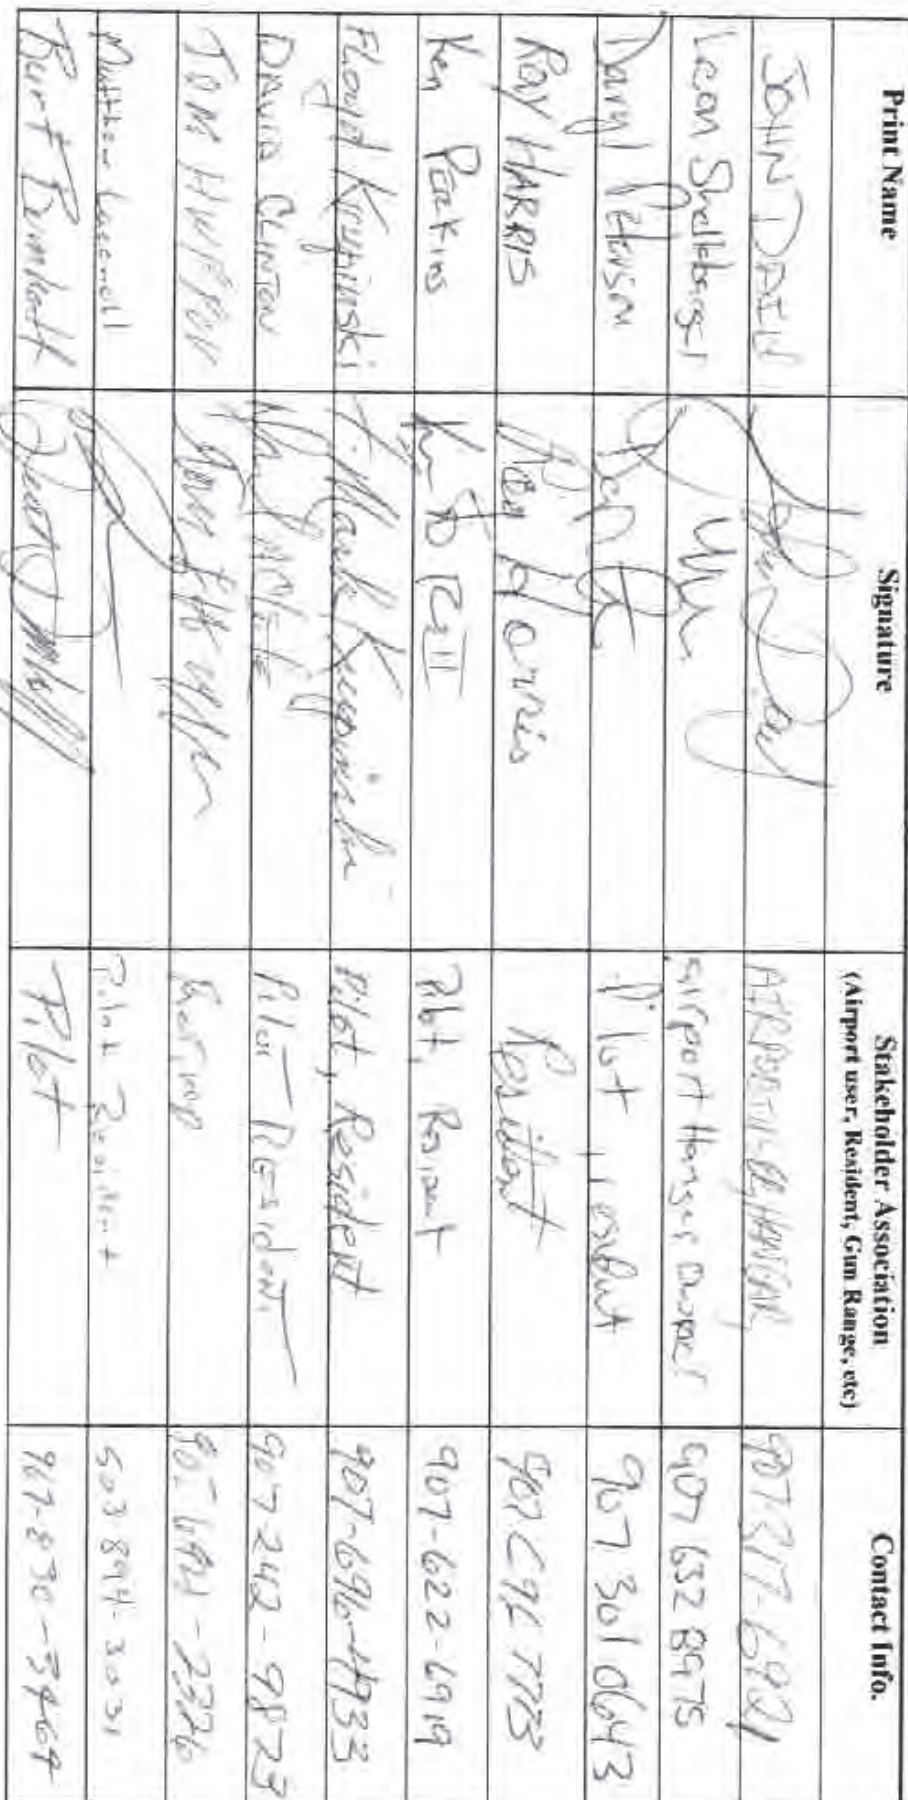 Print Name Signature Stakeholder Association Contact Info.
(Airport user, Resident, Gun Range, etc)
JOHN DAILY AIRPORT USER, HANGAR 907-317-6921
Leon Shellabarger airport Hanger Owner 907 632 8975
Daryl Peterson Pilot, resident 907 301 0643
Ray HARRIS Ray Harris Resident 907 696 7773
Ken Perkins Pilot, Resident 907-622-6919
Floyd Krupinski F. Mark Krupinski Pilot, Resident 907-696-4933
DAVID CLINTON Pilot - Resident 907 242-9823
TOM HUFFER
Matthew Pilot Resident 503 894-3031
Burt Pilot 907-830-3464